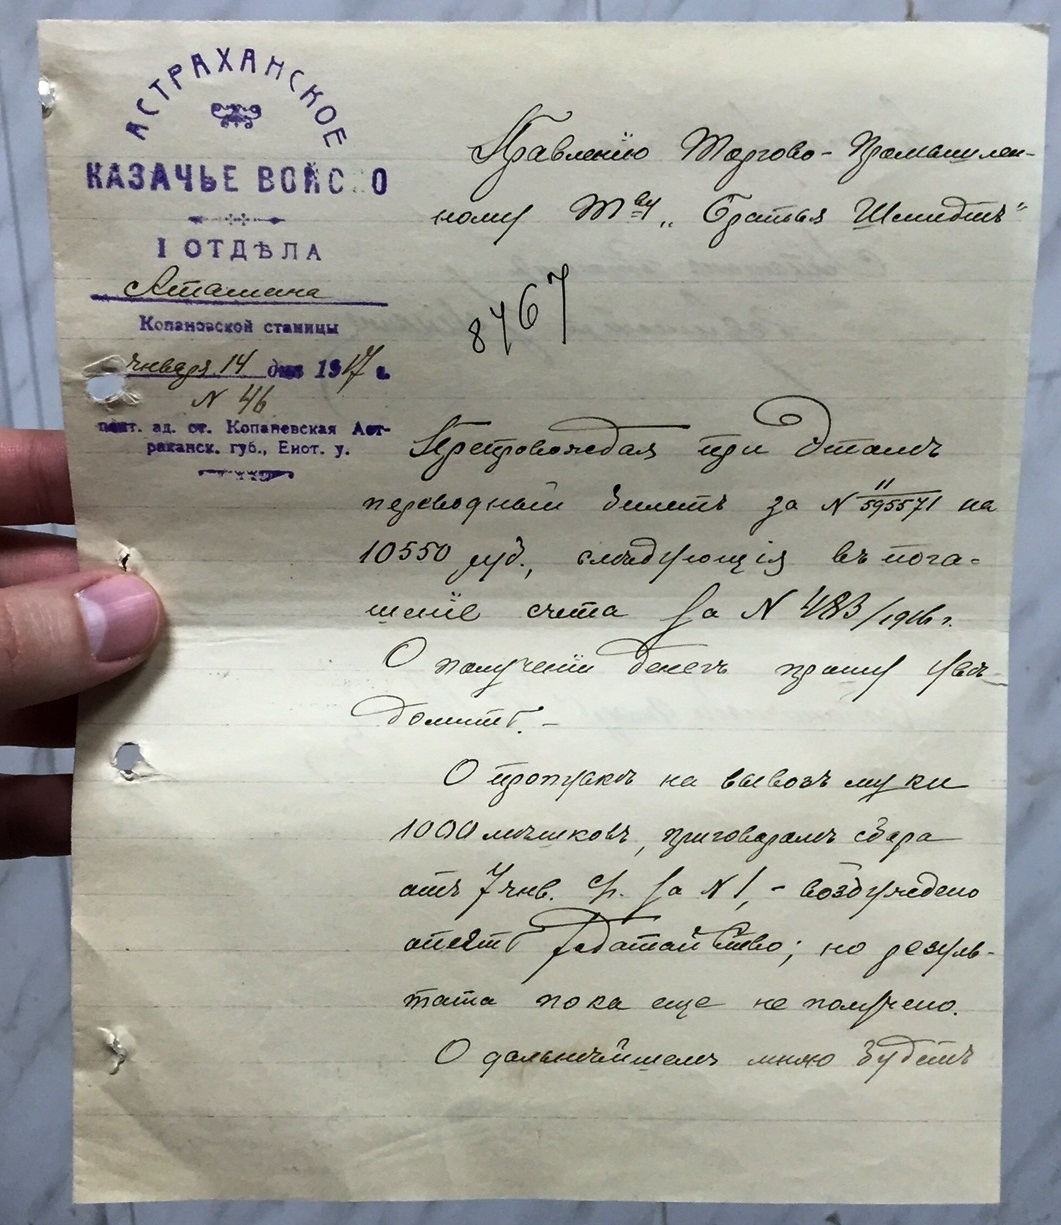 АСТРАХАНСКОЕ
КАЗАЧЬЕ ВОЙСКО
I ОТДѢЛА
Атамана
Копановской станицы
Января 14 дня 1917 г.
N 46
почт. ад. ст. Копановская Аст-
раханск. губ., Енот. у.
Правленію Торгово-Промышлен-
ному Тву „Братья Шмидтъ"
8767
Препровождая при этомъ
переводный билетъ за N 11/595571 на
10550 руб., слѣдующія въ пога-
шеніе счета за N 483/1916 г.
О полученіи денегъ прошу увѣ-
домить.-
О пропускѣ на вывозъ муки
1000 мѣшковъ, приговоромъ сбора
отъ 7 янв. с/г. за N 1, - возбуждено
опять ходатайство; но резуль-
тата пока еще не получено.
О дальнѣйшемъ мною будетъ